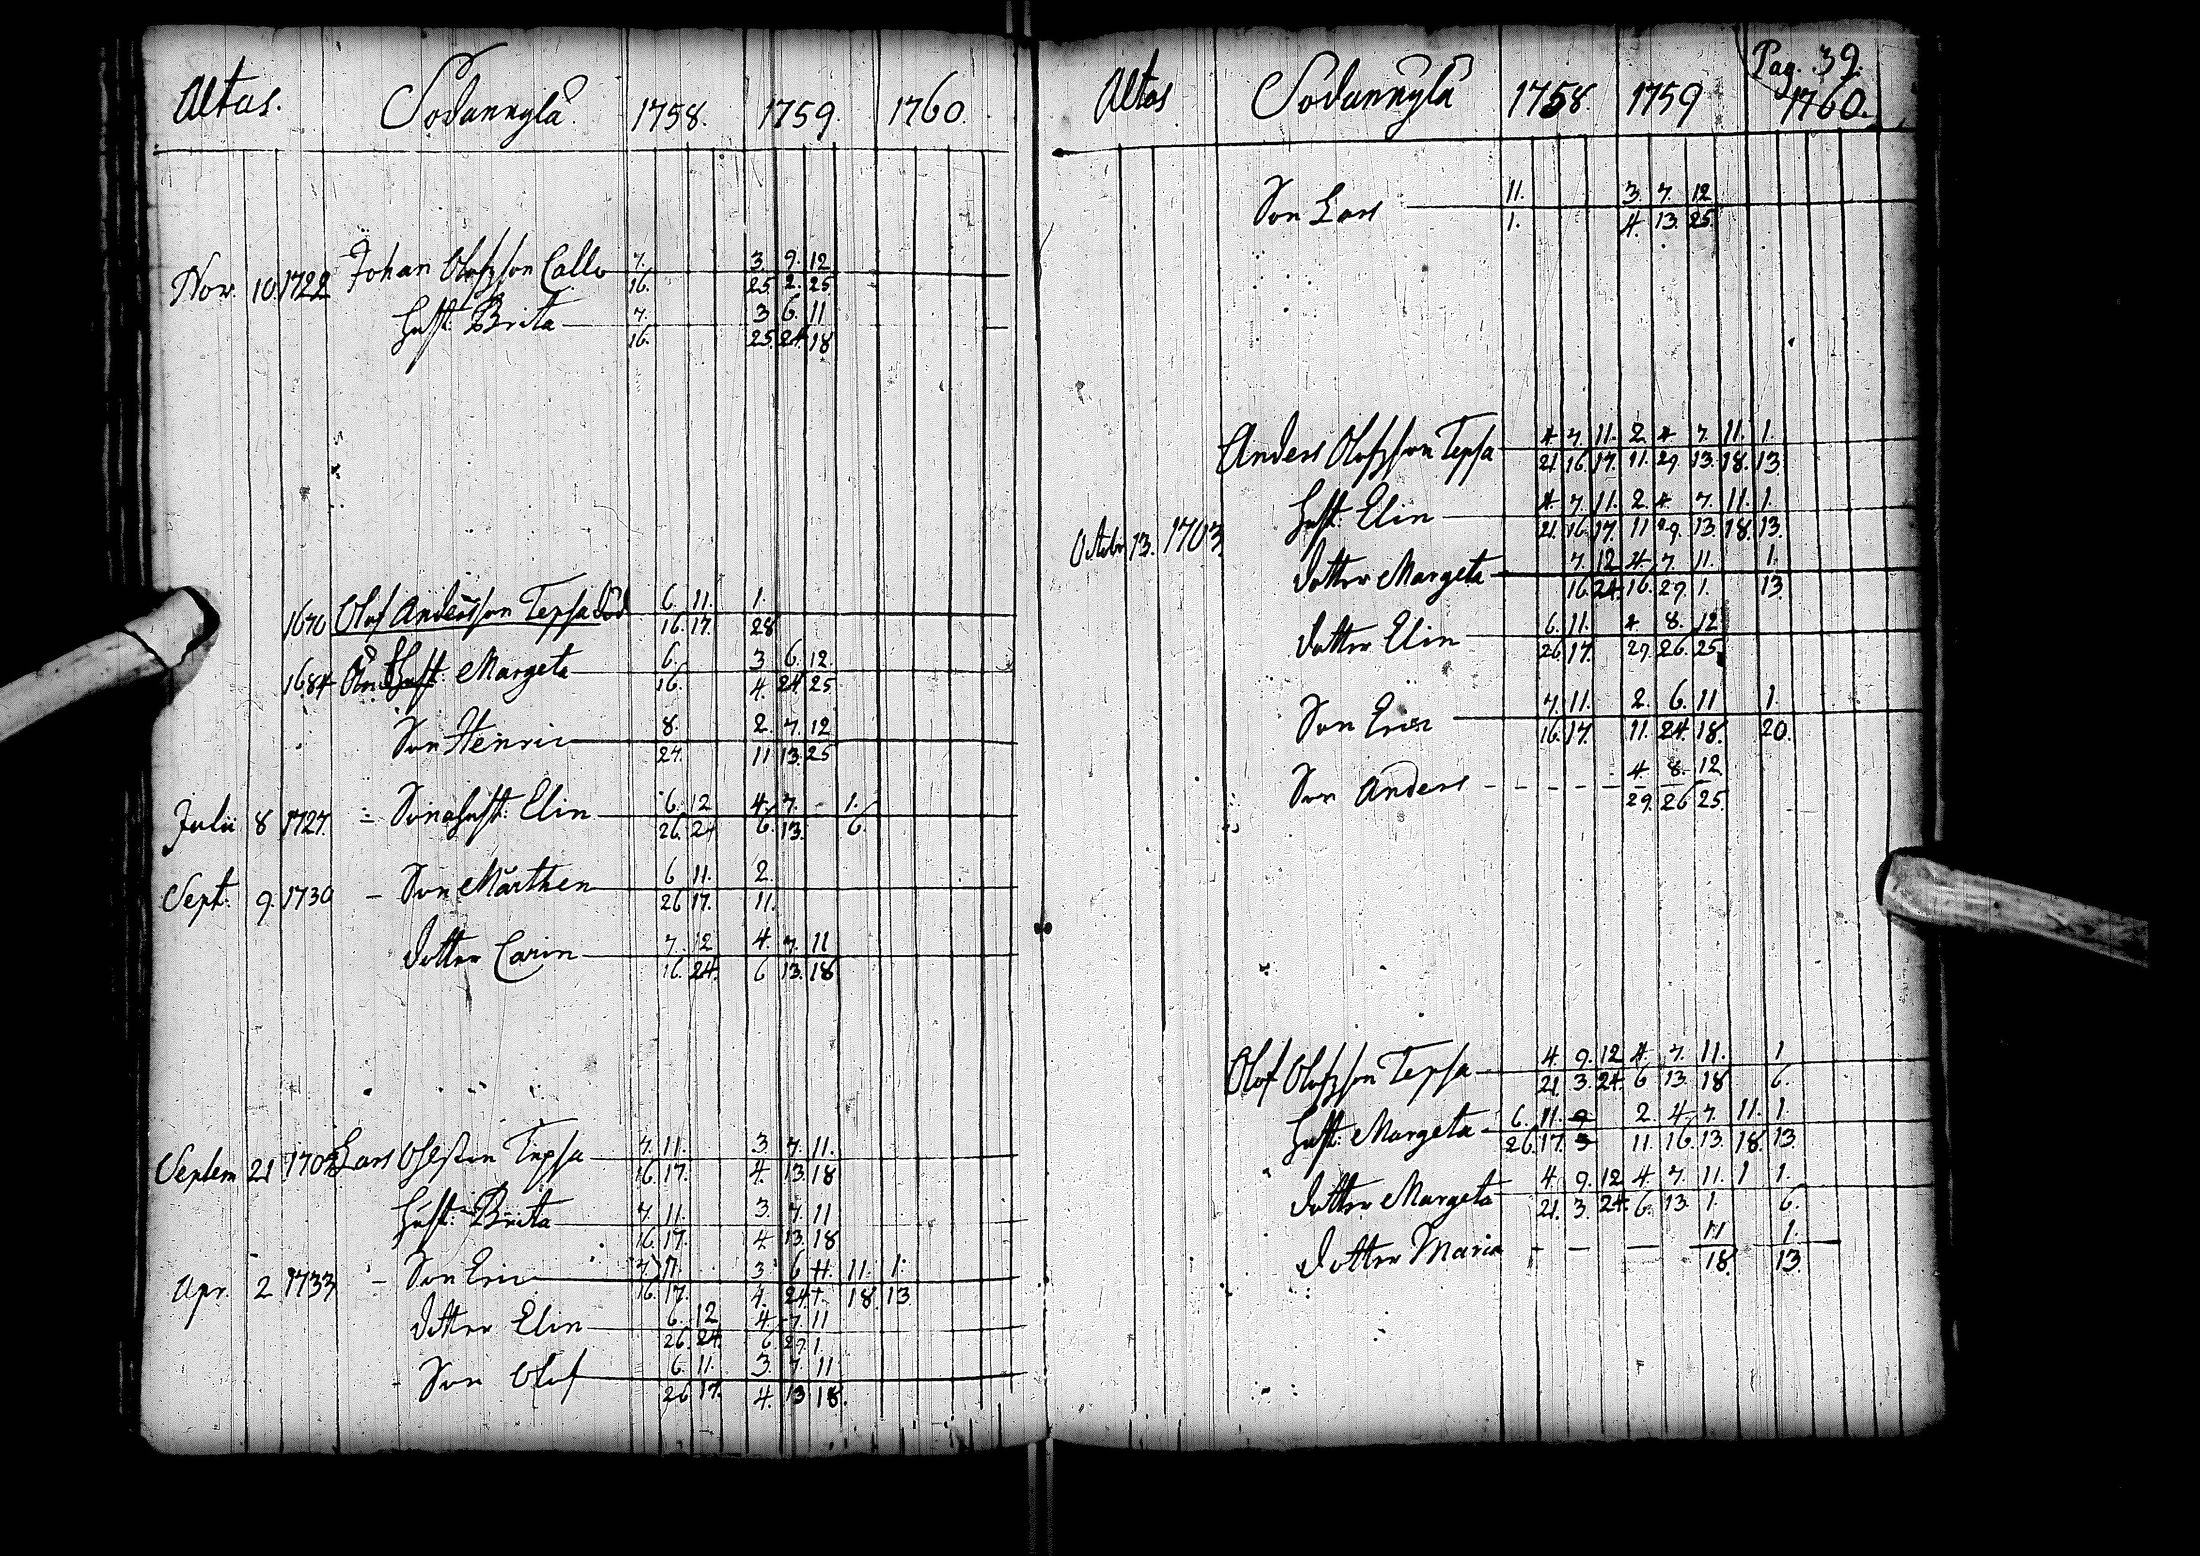 Ætas. Sodankylä 1758. 1759. 1760.
Nov. 10. 1722 Johan Olofsson Callo 7. 3. 9. 12
16. 25. 2. 25
hust. Brita 7. 3 6. 11
16. 25. 24. 18
1670 Olof Andersson Tepsa död 6. 11. 1.
16. 17. 28
1684 hust. Margeta 6. 3 6. 12.
16. 4. 24 25
Son Henric 8. 2. 7. 12
27. 11 13. 25
Julii 8 1727. Sonahust. Elin 6. 12 4. 7. 1.
26. 24 6. 13. 6.
Sept. 9. 1730 – Son Mårthen 6 11. 2.
26 17. 11.
dotter Carin 7. 12 4. 7. 11
16. 24. 6 13. 18
Septem 21 Lars Tepsa 7. 11. 3 7. 11.
16. 17. 4. 13. 18
hust. Brita 7. 11. 3. 7. 11
16. 17. 4 13. 18
Apr. 2 1733 – Son Eric 7. 11 3 6 11. 1.
16. 17. 4. 24 18. 13.
dotter Elin 6. 12 4. 7. 11
26. 24. 6. 27. 1.
Son Olof 6. 11. 3. 7. 11
26 17. 4. 13 18.
Pag. 39.
Ætas Sodankylä 1758. 1759 1760.
Son Lars 11. 3. 7. 12
1. 4. 13. 25.
Anders Olofsson Tepsa 4 7. 11. 2. 4 7. 11. 1.
21. 16. 17. 11. 29. 13. 18. 13
hust. Elin 4. 7. 11. 2. 4. 7. 11. 1.
21. 16. 17. 11 29. 13. 18. 13.
Octobr 13. 1703.
dotter Margeta 7. 12 4. 7. 11. 1.
16. 24. 16. 27. 1. 13.
dotter Elin 6. 11. 4. 8. 12
26 17. 29. 26. 25
Son Eric 7. 11. 2. 6. 11 1.
16. 17. 11. 24. 18. 20.
Son Anders – – – – – 4. 8. 12
29. 26 25.
Olof Olofsson Tepsa 4. 9. 12 4. 7. 11. 1
21. 3. 24. 6 13. 18 6.
hust. Margeta 6. 11. 9 2. 4. 7. 11. 1.
26. 17. 3 11. 16. 13. 18. 13
dotter Margeta 4. 9. 12 4. 7. 11. 1 1.
21. 3. 24. 6. 13. 1. 6.
dotter Maria – – — 11 1.
18. 13.